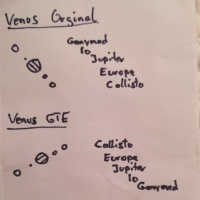 Venos Orginal
Ganymed
Io
Jupiter
Europe
Callisto
Venus GTE
Callisto
Europe
Jupiter
Io
Ganymed